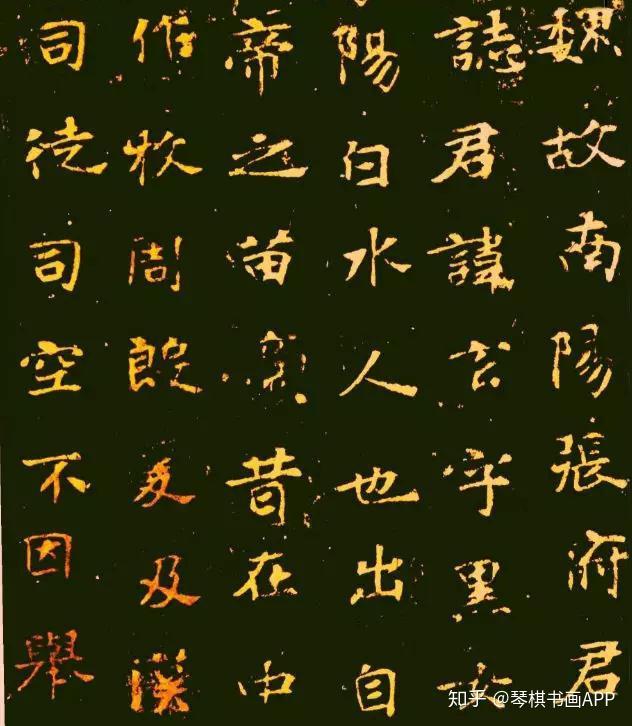 魏故南陽張府君
誌君諱玄字黑女
陽白水人也出自
帝之苗裔昔在中
作牧周殷爰及漢
司徒司空不因舉
知乎 @琴棋书画APP